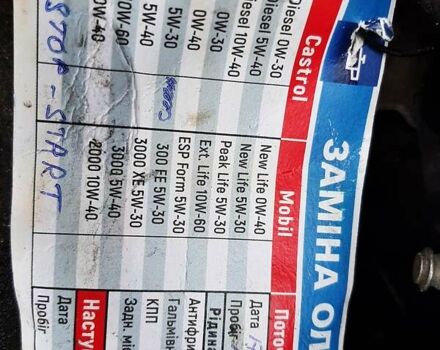 ЗАМІНА ОЛ
Castrol
Diesel 0W-30
Diesel 5W-40
iesel 10W-40
0W-30
0W-40
5W-30
5W-40
10W-60
0W-40
STOP-START
Mobil
New Life 0W-40
New Life 5W-30
Peak Life 5W-50
Ext. Life 10W-60
ESP Form 5W-30
300 EE 5W-30
3000 XE 5W-30
3000 5W-40
2000 10W-40
Поточ
Дата
Пробіг
Рідина
Антифри
Гальмівн
КПП
Задн. мі
Насту
Дата
Пробіг